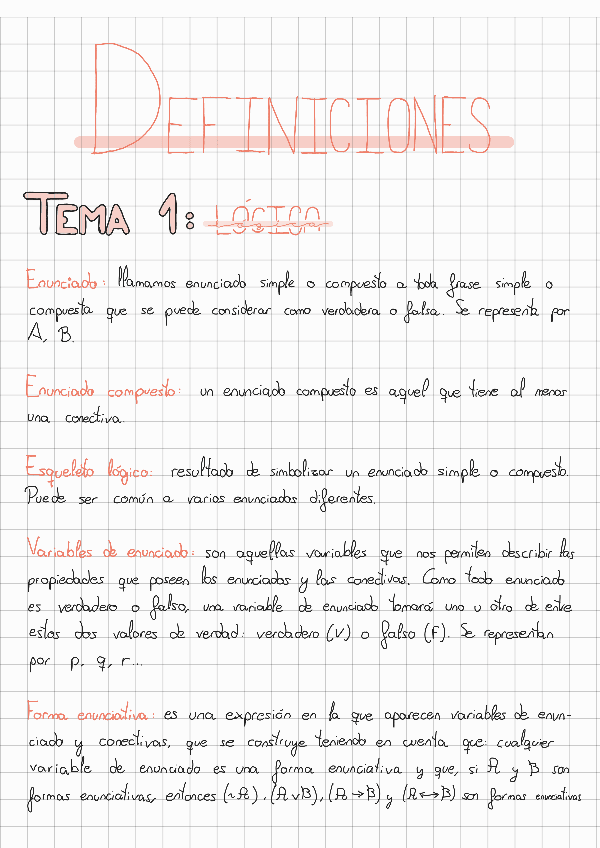 DEFINICIONES
TEMA 1: LÓGICA
Enunciado: llamamos enunciado simple o compuesto a toda frase simple o
compuesta que se puede considerar como verdadera o falsa. Se representa por
A, B.
Enunciado compuesto: un enunciado compuesto es aquel que tiene al menos
una conectiva.
Esqueleto lógico: resultado de simbolizar un enunciado simple o compuesto.
Puede ser común a varios enunciados diferentes.
Variables de enunciado: son aquellas variables que nos permiten describir las
propiedades que poseen los enunciados y las conectivas. Como todo enunciado
es verdadero o falso, una variable de enunciado tomará uno u otro de entre
estos dos valores de verdad: verdadero (V) o falso (F). Se representan
por p, q, r...
Forma enunciativa: es una expresión en la que aparecen variables de enun-
ciado y conectivas, que se construye teniendo en cuenta que: cualquier
variable de enunciado es una forma enunciativa y que, si A y B son
formas enunciativas, entonces (~A), (A∨B), (A→B) y (A↔B) son formas enunciativas